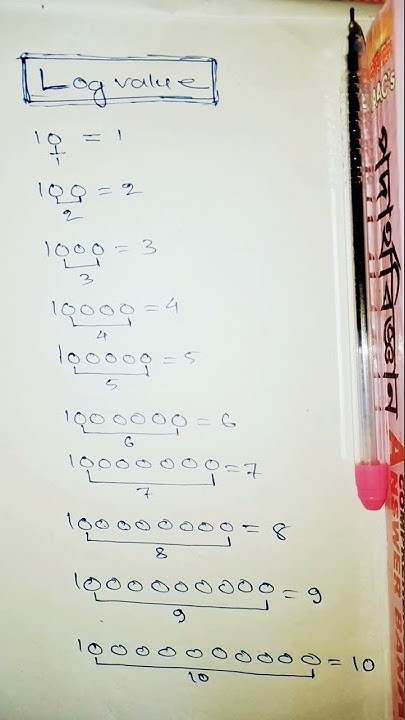 Log value
10 = 1
1
100 = 2
2
1000 = 3
3
10000 = 4
4
100000 = 5
5
1000000 = 6
6
10000000 = 7
7
100000000 = 8
8
1000000000 = 9
9
10000000000 = 10
10
AAC's
পদার্থবিজ্ঞান